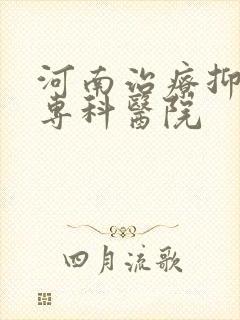 河南治療抑
專科醫院
四月流歌